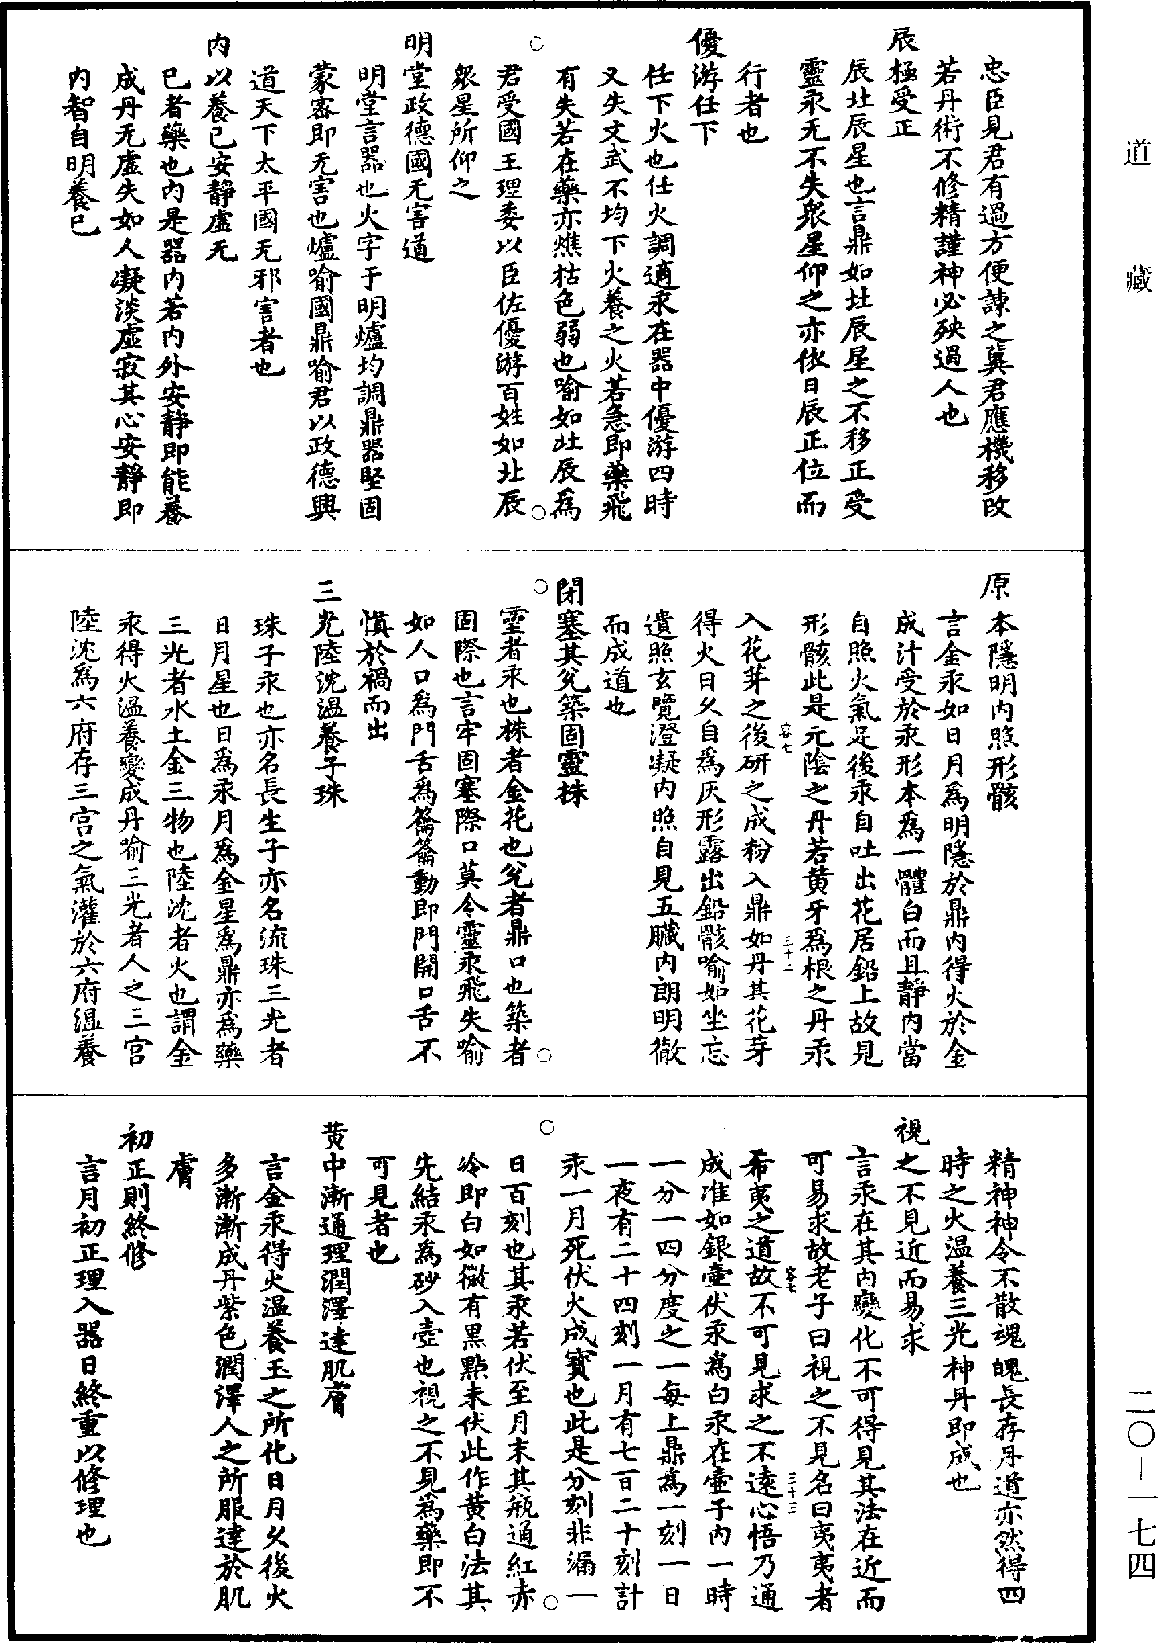 道藏
忠臣見君有過方便諫之冀君應機移改
若丹術不修精謹神必殃過人也
辰極受正
辰北辰星也言鼎如北辰星之不移正受
靈汞无不失衆星仰之亦依日辰正位而
行者也
優游任下
任下火也任火調適汞在器中優游四時
又失文武不均下火養之火若急即藥飛
有失若在藥亦燋枯色弱也喻如北辰爲
君受國王理委以臣佐優游百姓如北辰
衆星所仰之
明堂政德國无害道
明堂言器也火字于明爐均調鼎器堅固
蒙密即无害也爐喻國鼎喻君以政德興
道天下太平國无邪害者也
内以養己安靜虛无
己者藥也内是器内若内外安靜即能養
成丹无虛失如人凝淡虛寂其心安靜即
内智自明養己
原本隱明内照形骸
言金汞如日月爲明隱於鼎内得火於金
成汁受於汞形本爲一體白而且靜内當
自照火氣足後汞自吐出花居鉛上故見
形骸此是元陰之丹若黄牙爲根之丹汞
容七
三十二
入花芽之後研之成粉入鼎如丹其花芽
得火日久自爲灰形露出鉛骸喻如坐忘
遺照玄覽澄凝内照自見五臟内朗明徹
而成道也
閉塞其兊築固靈株
靈者汞也株者金花也兊者鼎口也築者
固際也言牢固塞際口莫令靈汞飛失喻
如人口爲門舌爲籥籥動即門開口舌不
慎於禍而出
三光陸沈溫養子珠
珠子汞也亦名長生子亦名流珠三光者
日月星也日爲汞月爲金星爲鼎亦爲藥
三光者水土金三物也陸沈者火也謂金
汞得火溫養變成丹喻三光者人之三宫
陸沈爲六府存三宫之氣灌於六府溫養
精神神令不散魂魄長存丹道亦然得四
時之火溫養三光神丹即成也
視之不見近而易求
言汞在其内變化不可得見其法在近而
可易求故老子曰視之不見名曰夷夷者
容七
三十三
希夷之道故不可見求之不遠心悟乃通
成准如銀壷伏汞爲白汞在壷子内一時
一分一四分度之一每上鼎爲一刻一日
一夜有二十四刻一月有七百二十刻計
汞一月死伏火成寳也此是分刻非漏一
日百刻也其汞若伏至月末其瓶通紅赤
冷即白如微有黒點未伏此作黄白法其
先結汞爲砂入壺也視之不見爲藥即不
可見者也
黄中漸通理潤澤達肌膚
言金汞得火溫養玉之所化日月久後火
多漸漸成丹紫色潤澤人之所服達於肌
膚
初正則終修
言月初正理入器日終重以修理也
二〇―一七四